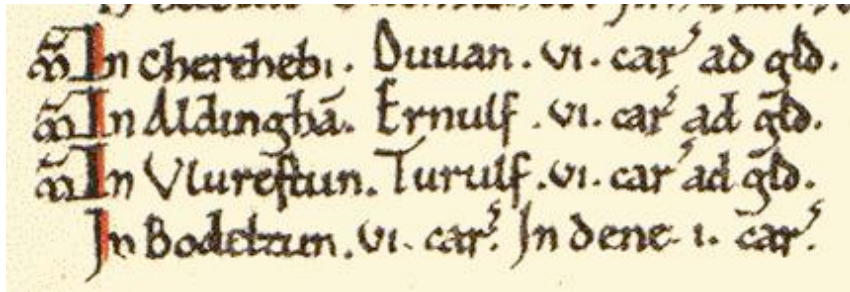 m̃ In Cherchebi. Duuan. vi. car' ad gld̃.
m̃ In Aldinghã. Ernulf. vi. car' ad gld̃.
m̃ In Vlureſtun. Turulf. vi. car' ad gld̃.
In Bodeltun. vi. car'. In dene. i. car'.